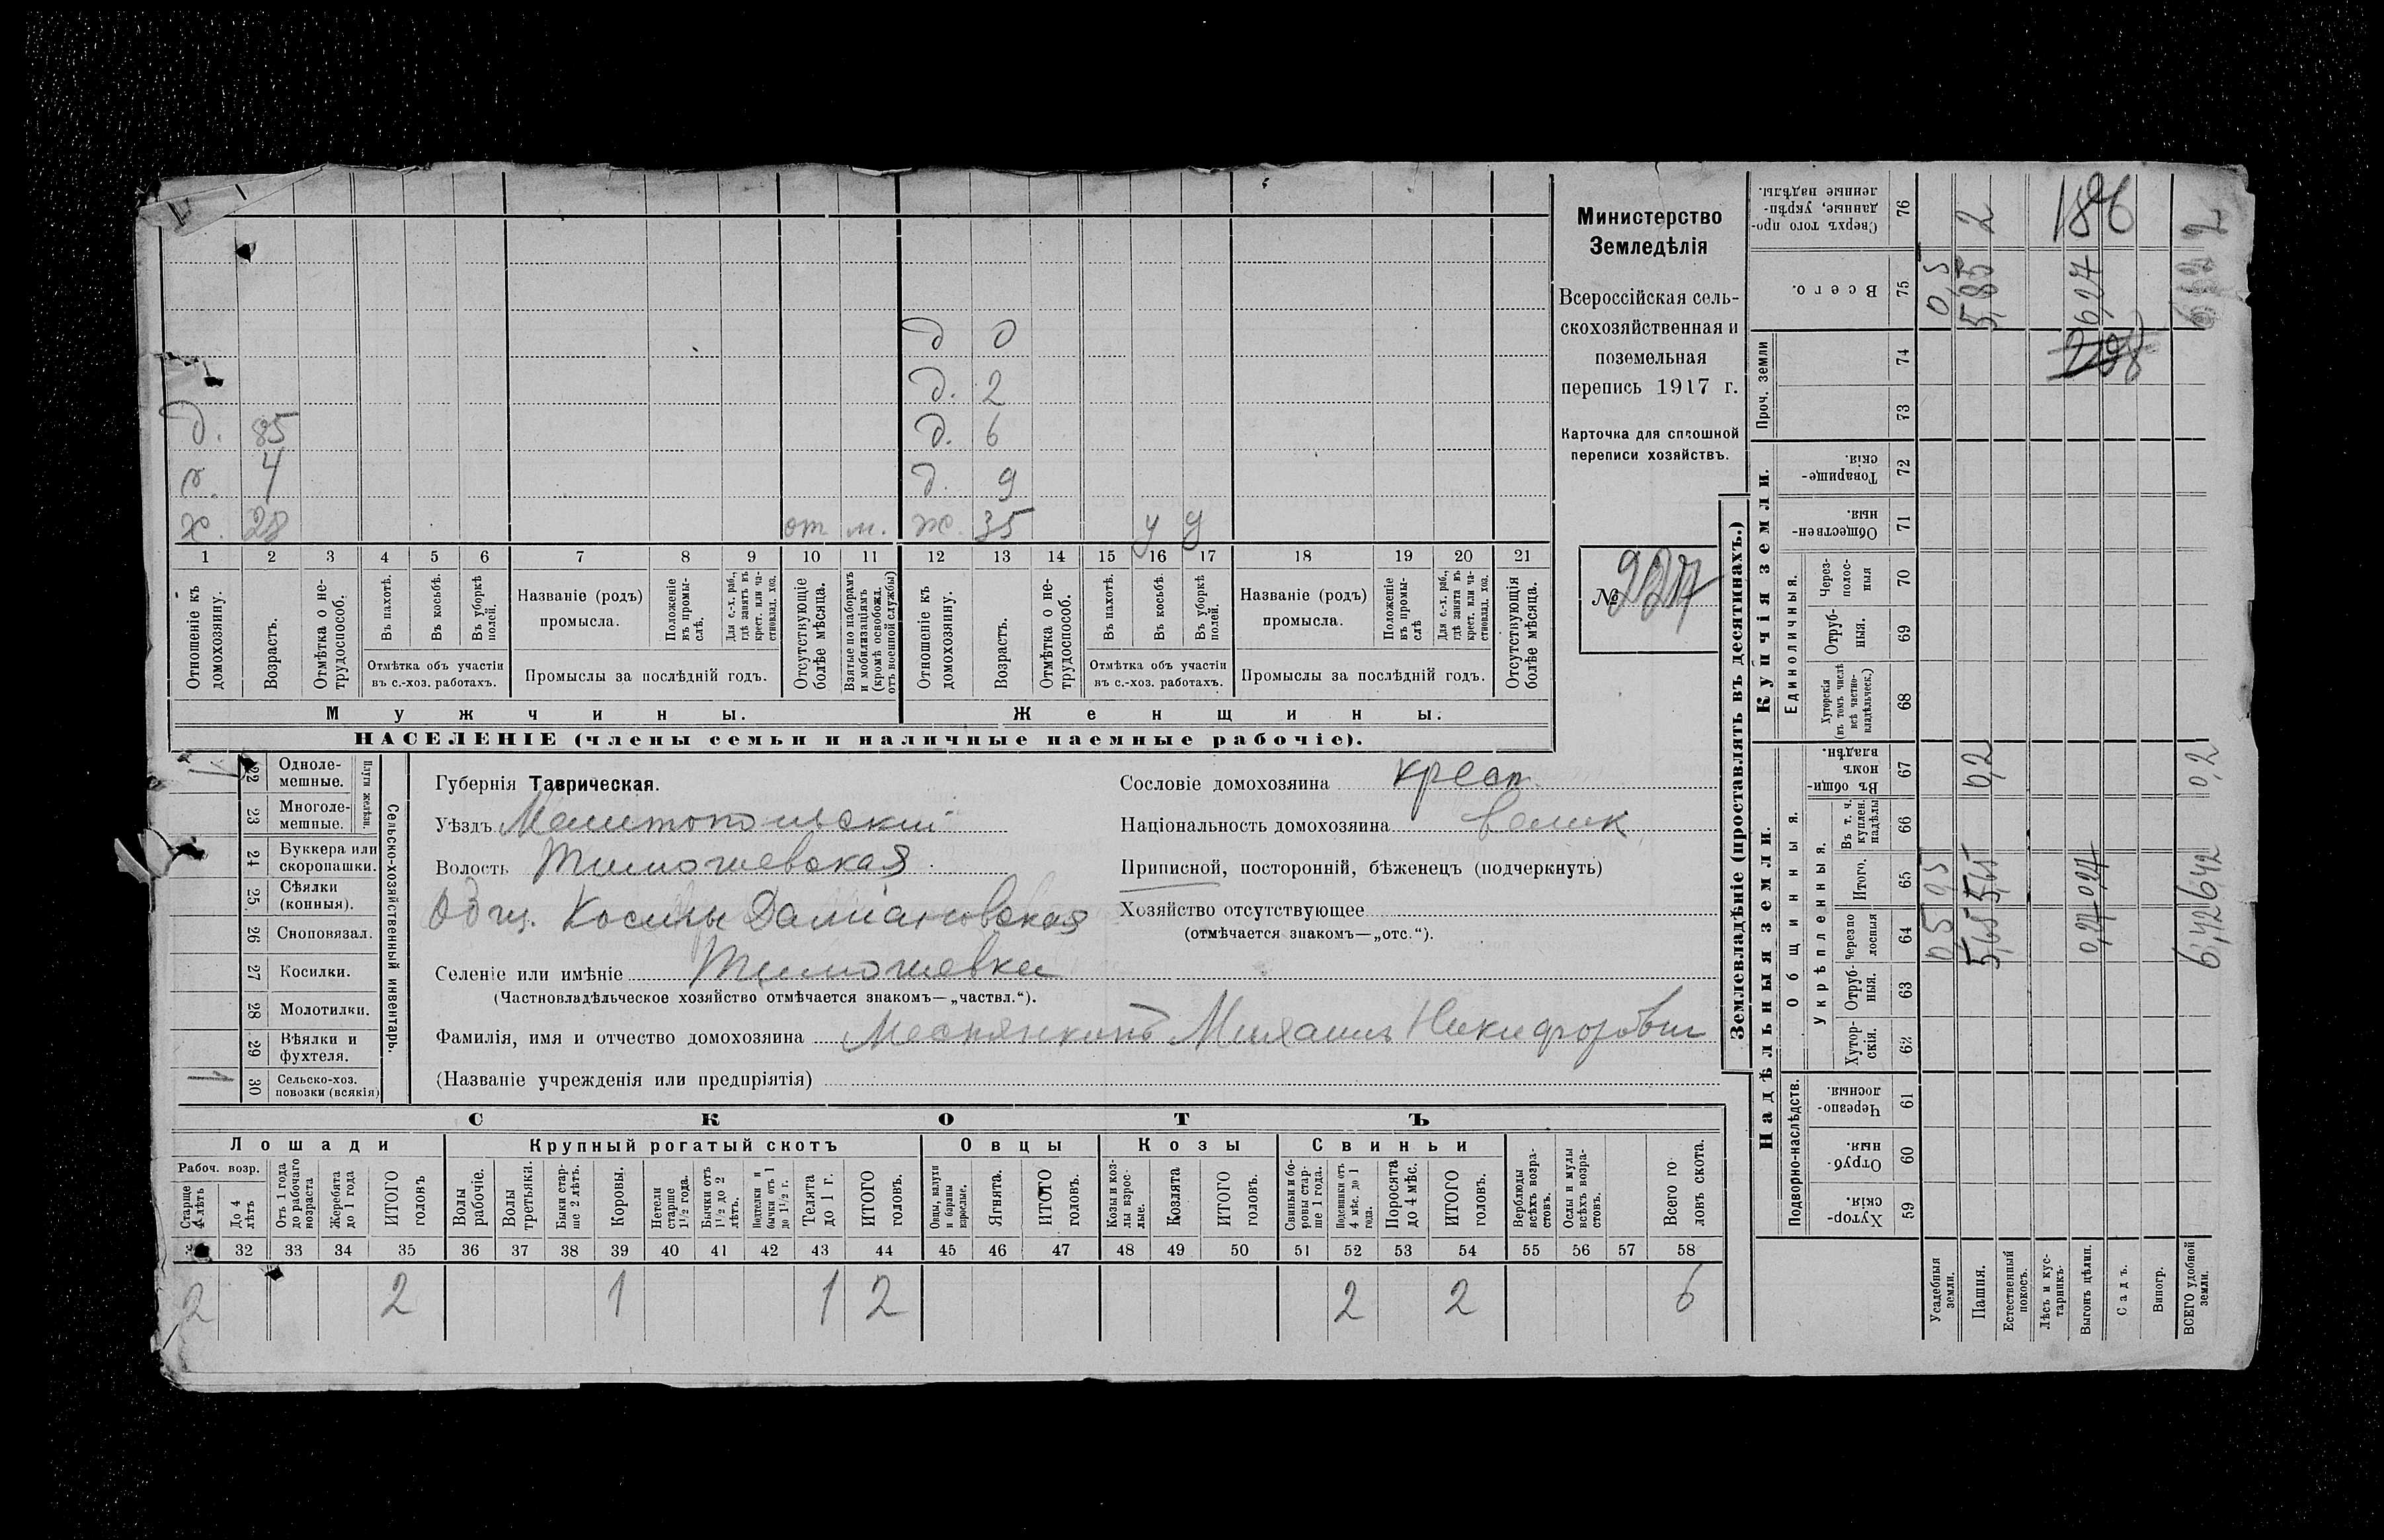 Министерство
Земледѣлія
Всероссійская сель-
скохозяйственная и
поземельная
перепись 1917 г.
Карточка для сплошной
переписи хозяйствъ.
№
д 0
д. 2
д. д. 6
4 д. 9
28 от м. ж. 35 у у
1 2 3 4 5 6 7 8 9 10 11 12 13 14 15 16 17 18 19 20 21
Отношеніе къ домохозяину.
Возрастъ.
Отмѣтка о не-трудоспособ.
Въ пахотѣ.
Въ косьбѣ.
Въ уборкѣ полей.
Отмѣтка объ участіи
въ с.-хоз. работахъ.
Названіе (родъ)
промысла.
Положеніе въ промы-слѣ,
Для с.-х. раб., гдѣ занятъ въ крест. или ча-стновлад. хоз.
Промыслы за послѣдній годъ.
Отсутствующіе болѣе мѣсяца.
Взятые по наборамъ и мобилизаціямъ (кромѣ освобожд. отъ военной службы)
Отношеніе къ домохозяину.
Возрастъ.
Отмѣтка о не-трудоспособ.
Въ пахотѣ.
Въ косьбѣ.
Въ уборкѣ полей.
Отмѣтка объ участіи
въ с.-хоз. работахъ.
Названіе (родъ)
промысла.
Положеніе въ промы-слѣ
Для с.-х. раб., гдѣ занята въ крест. или ча-стновлад. хоз.
Промыслы за послѣдній годъ.
Отсутствующія болѣе мѣсяца.
Мужчины.
Женщины.
НАСЕЛЕНІЕ (члены семьи и наличные наемные рабочіе).
Сельско-хозяйственный инвентарь.
Плуги желѣзн.
22 Одноле-мешные.
23 Многоле-мешные.
24 Буккера или скоропашки.
25 Сѣялки (конныя).
26 Сноповязал.
27 Косилки.
28 Молотилки.
29 Вѣялки и фухтеля.
1 30 Сельско-хоз. повозки (всякія)
Губернія Таврическая.
Уѣздъ Мелитопольскій
Волость Тимошевская
Общ. Косьмы Даміановская
Селеніе или имѣніе Тимошевка
(Частновладѣльческое хозяйство отмѣчается знакомъ—„частвл.“).
Фамилія, имя и отчество домохозяина Михаилъ Никифорович
(Названіе учрежденія или предпріятія)
Сословіе домохозяина крест.
Національность домохозяина велик
Приписной, посторонній, бѣженецъ (подчеркнуть)
Хозяйство отсутствующее
(отмѣчается знакомъ—„отс.“).
СКОТЪ
Лошади
Крупный рогатый скотъ
Овцы
Козы
Свиньи
Рабоч. возр.
Старше 4 лѣтъ
До 4 лѣтъ
Отъ 1 года до рабочаго возраста
Жеребята до 1 года
ИТОГО головъ
Волы рабочіе.
Волы третьяки.
Быки стар-ше 2 лѣтъ.
Коровы.
Нетели старше 1½ года.
Бычки отъ 1½ до 2 лѣтъ.
Подтелки и бычки отъ 1 до 1½ г.
Телята до 1 г.
ИТОГО головъ.
Овцы, валухи и бараны взрослые.
Ягнята.
ИТОГО головъ.
Козы и коз-лы взрос-лые.
Козлята
ИТОГО головъ.
Свиньи и бо-ровы стар-ше 1 года.
Подсвинки отъ 4 мѣс. до 1 года.
Поросята до 4 мѣс.
ИТОГО головъ.
Верблюды всѣхъ возра-стовъ.
Ослы и мулы всѣхъ возра-стовъ.
Всего го-ловъ скота.
32 33 34 35 36 37 38 39 40 41 42 43 44 45 46 47 48 49 50 51 52 53 54 55 56 57 58
2 2 1 1 2 2 2 6
Землевладѣніе (проставлять въ десятинахъ.)
Надѣльныя земли.
Купчія земли.
Проч. земли
Подворно-наслѣдств.
Общинныя.
Укрѣпленныя.
Единоличныя.
Хутор-скія. 59
Отруб-ныя. 60
Черезпо-лосныя. 61
Хутор-скія. 62
Отруб-ныя. 63
Черезпо-лосныя 64
Итого. 65
Въ т. ч. куплен. надѣлы 66
Въ общин-номъ владѣн. 67
Хуторскія (въ томъ числѣ всѣ частно-владѣльческ.) 68
Отруб-ныя. 69
Через-полос-ныя 70
Обществен-ныя. 71
Товарище-скія. 72
73
74
Всего. 75
Сверхъ того про-данные, укрѣп-ленные надѣлы. 76
Усадебныя земли. 0,5
Пашня. 5,65 5,65 0,2 5,85 2
Естественный покосъ.
Лѣсъ и кус-тарникъ.
Выгонъ цѣлин. 0,27 0,27
Садъ.
Виногр.
ВСЕГО удобной земли. 6,42 6,42 0,2